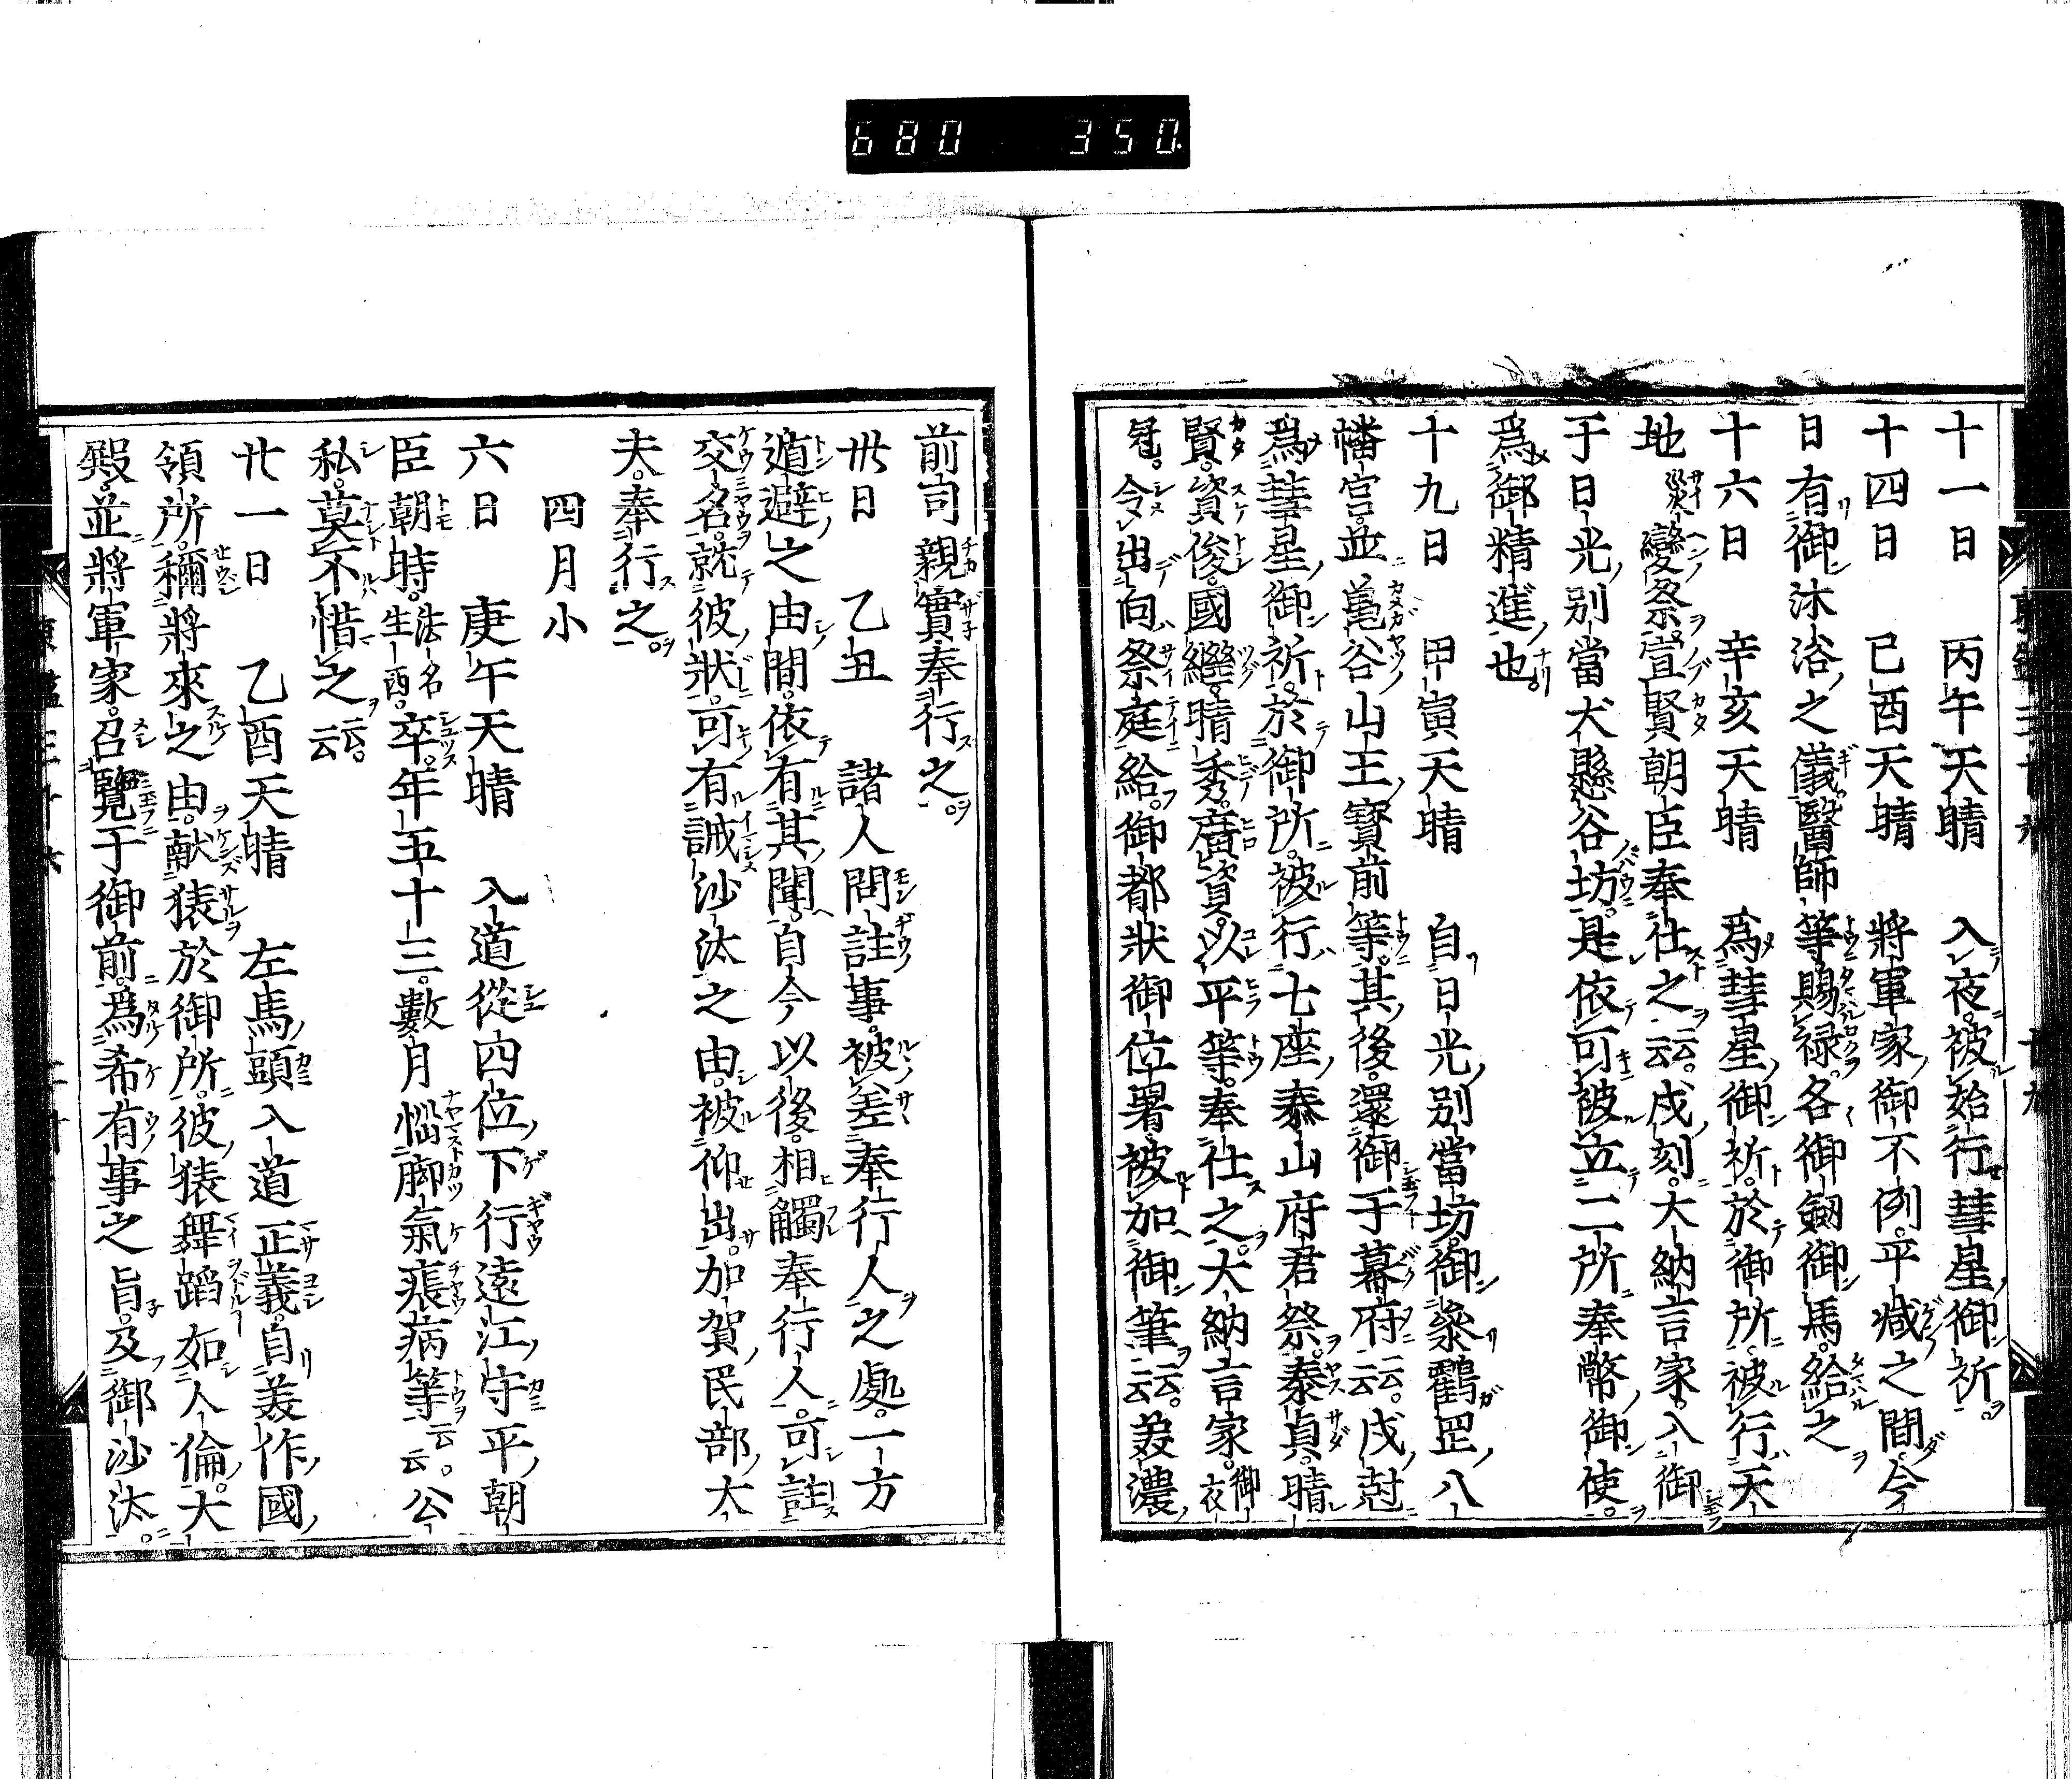 680 350.
十一日　丙午天晴　入夜。被始行彗星御祈。
十四日　己酉天晴　將軍家御不例。平減之間。今
日有御沐浴之儀醫師等賜禄。各御劔御馬。給之
十六日　辛亥天晴　爲彗星御祈。於御所被行天
地災變祭。宣賢朝臣奉仕之云云。戌刻。大納言家。入御
于日光別當犬懸谷坊。是依可被立二所奉幣御使。
爲御精進也
十九日　甲寅天晴　自日光別當坊。御參鶴岡八
幡宮。並龜谷山王寶前等。其後。還御于幕府云云。戌尅
爲彗星御祈。於御所。被行七座泰山府君祭。泰貞。晴
賢。資俊。國繼。晴秀。廣資。以平等。奉仕之。大納言家。御衣
冠。令出向祭庭給。御都狀御位署被加御筆云云。美濃
前司親實奉行之。
卅日　乙丑　諸人問註事。被差奉行人之處。一方
遁避之由間。依有其聞。自今以後。相觸奉行人。可註
交名。就彼狀。可有誡沙汰之由。被仰出。加賀民部大
夫。奉行之。
四月小
六日　庚午天晴　入道從四位下行遠江守平朝
臣朝時。法名生西。卒。年五十三。數月惱脚氣瘬病等云云。公
私。莫不惜之云云。
廿一日　乙酉天晴　左馬頭入道正義。自美作國
領所。稱將來之由。献猿於御所。彼猿舞蹈如人倫。大
殿。並將軍家。召覽于御前。爲希有事之旨。及御沙汰。